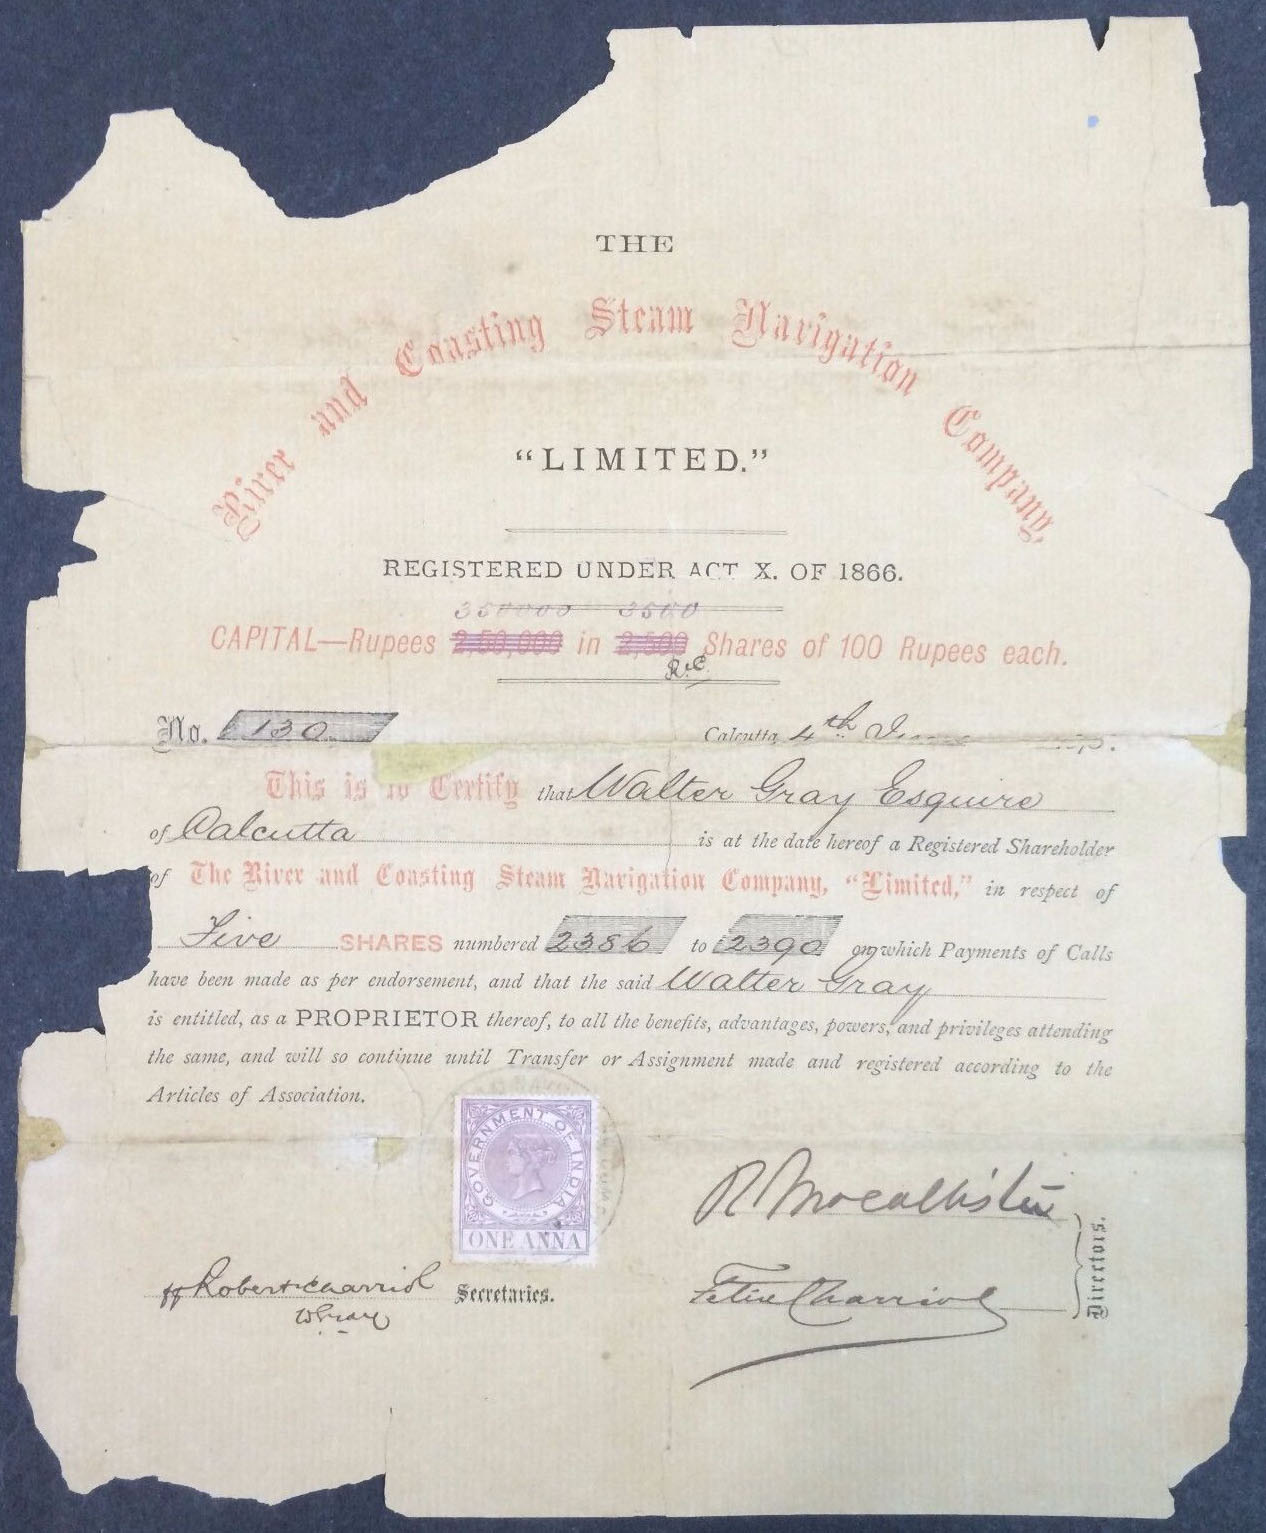 THE
River and Coasting Steam Navigation Company,
"LIMITED."
REGISTERED UNDER ACT X. OF 1866.
350000 3500
CAPITAL—Rupees 2,50,000 in 2,500 Shares of 100 Rupees each.
R&C.
No. 130 Calcutta, 4th
This is to Certify that Walter Gray Esquire
of Calcutta is at the date hereof a Registered Shareholder
of The River and Coasting Steam Navigation Company, "Limited," in respect of
Five SHARES numbered 2386 to 2390 on which Payments of Calls
have been made as per endorsement, and that the said Walter Gray
is entitled, as a PROPRIETOR thereof, to all the benefits, advantages, powers, and privileges attending
the same, and will so continue until Transfer or Assignment made and registered according to the
Articles of Association.
GOVERNMENT OF INDIA
ONE ANNA
R Macallister
Directors.
Robert & Charriol Secretaries.
WGray
Felix Charriol